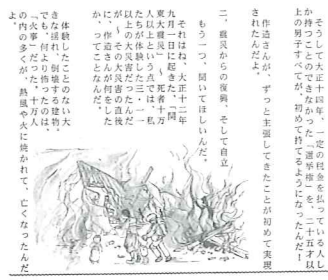 そうして大正十四年、一定の税金を払っている人し
か持つことのできなかった「選挙権」を、二十五才以
上の男子すべてが、初めて持てるようになったんだ！
作造さんが、ずっと主張してきたことが初めて実現
されたんだよ。
二、震災からの復興、そして自立
もう一つ、聞いてほしいんだ。
それはね、大正十二年
九月一日に起きた、「関
東大震災」～死者十万
人以上という点では、私
たちが体験した三・一一
以上の大災害だったんだ
が～その大災害の直後
に、作造さんが何をした
か、ってことなんだ。
体験したことのない大
きな揺れ、倒壊する建物
でも、何より怖いのは、
「火事」だった。十万人
の内の多くが、熱風や火に焼かれて、亡くなったんだ